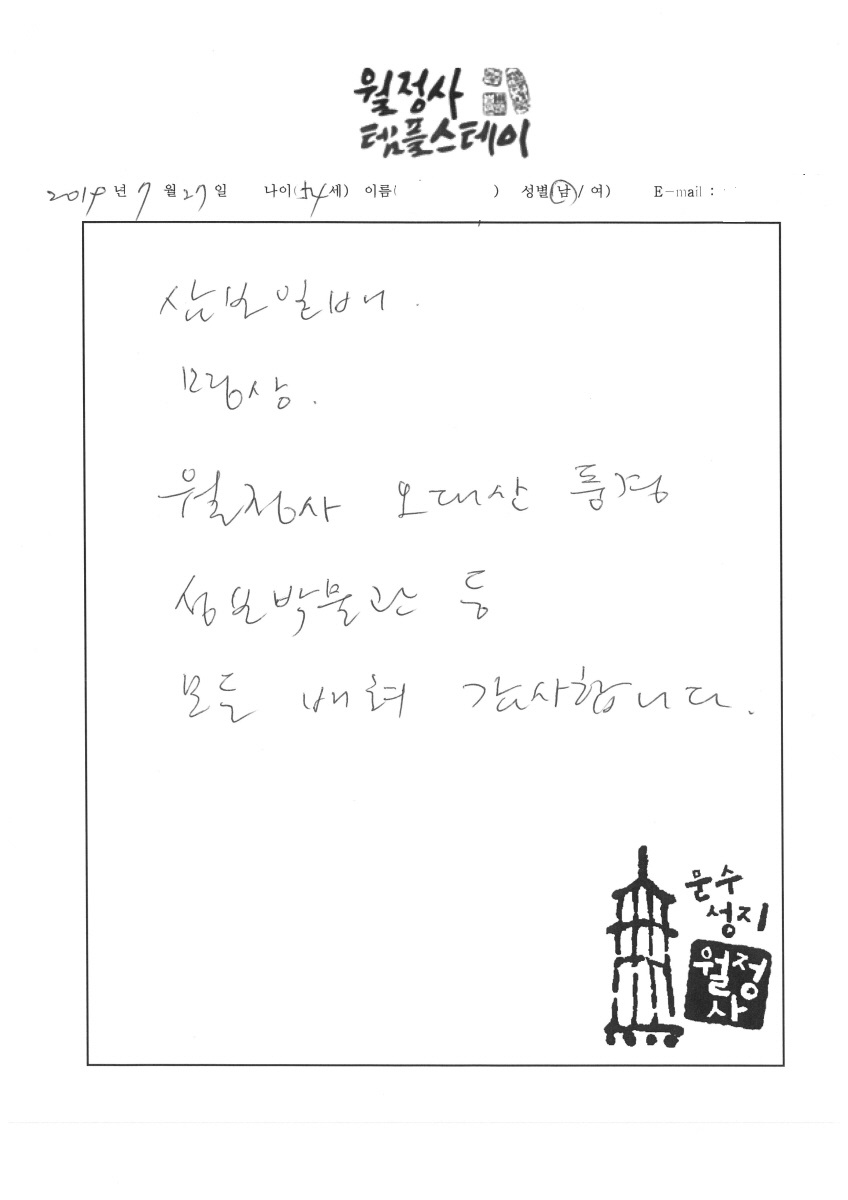 월정사
템플스테이
2014년 7월 27일 나이(54세) 이름( ) 성별(남/여) E-mail :
삼보일배.
명상.
월정사 오대산 풍경
성보박물관 등
모든 배려 감사합니다.
문수
성지
월정
사